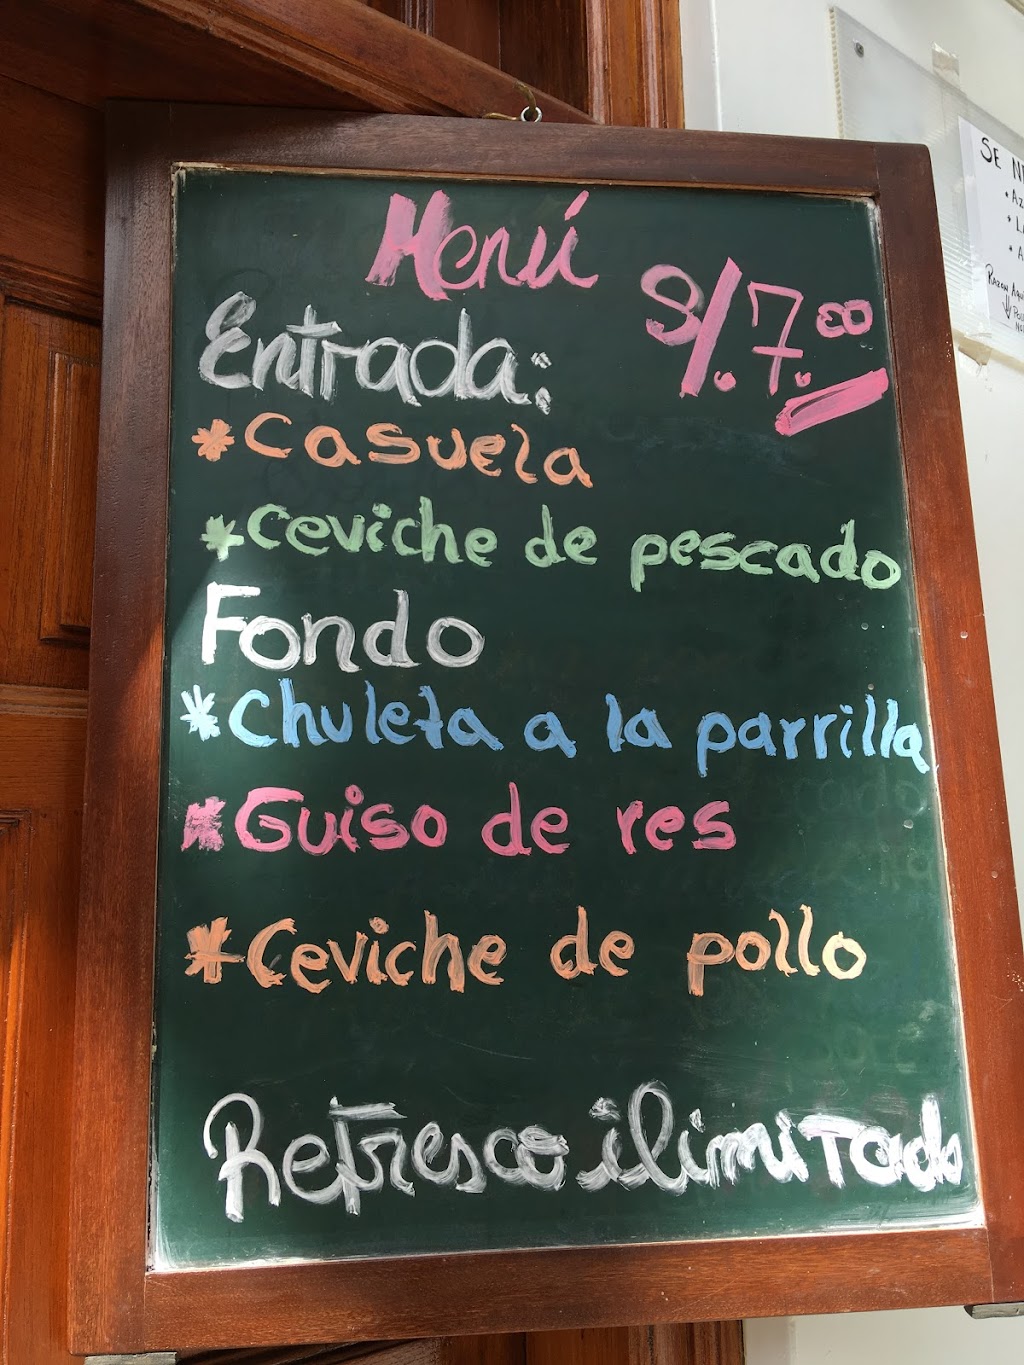 Menú
S/. 7.00
Entrada:
*Casuela
*Ceviche de pescado
Fondo
*Chuleta a la parrilla
*Guiso de res
*Ceviche de pollo
Refresco ilimitado
SE